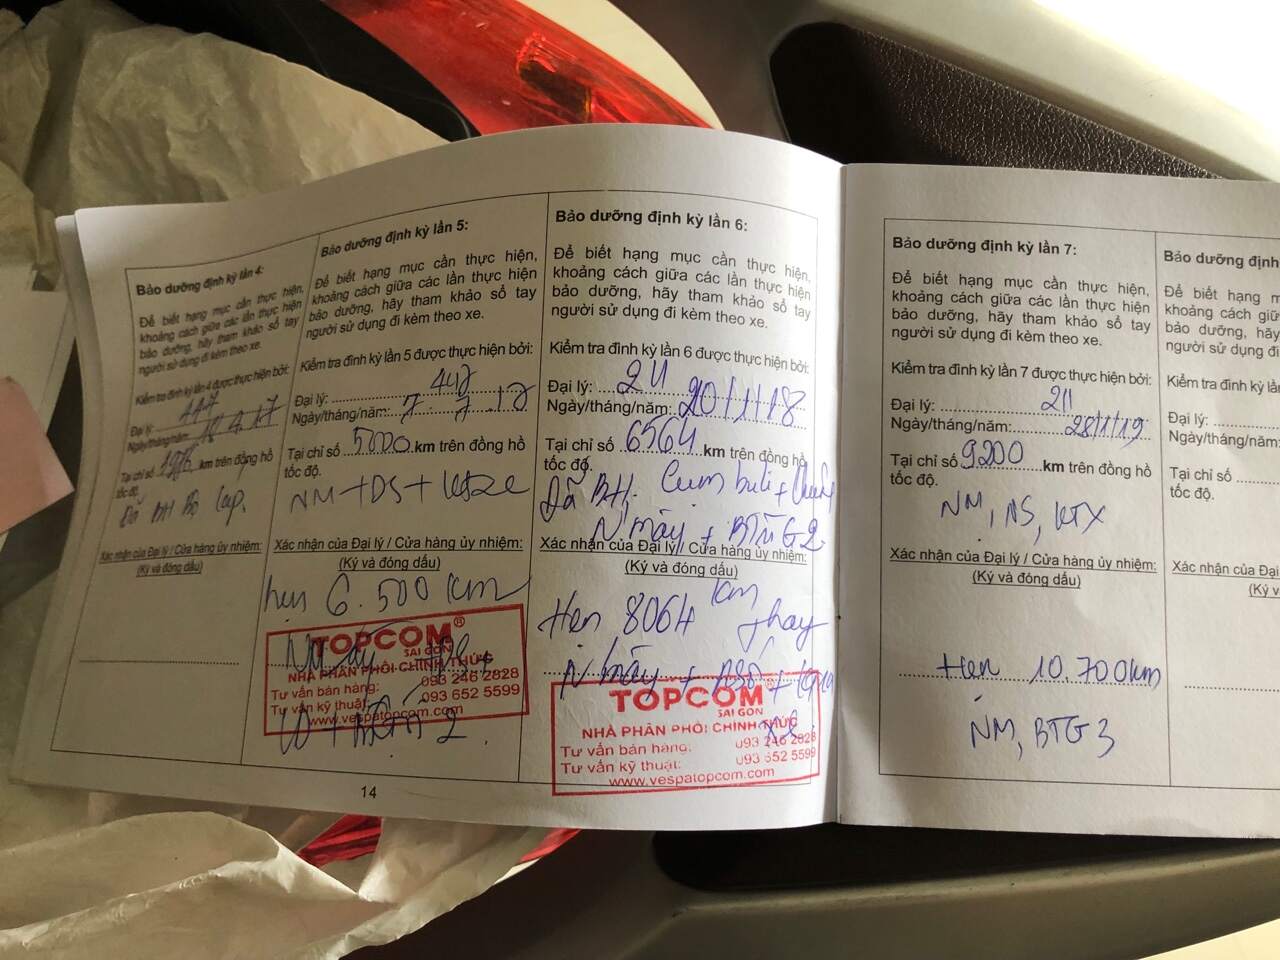 Bảo dưỡng định kỳ lần 4:
Để biết hạng mục cần thực hiện,
khoảng cách giữa các lần thực hiện
bảo dưỡng, hãy tham khảo sổ tay
người sử dụng đi kèm theo xe.
Kiểm tra đình kỳ lần 4 được thực hiện bởi:
Đại lý:
Ngày/tháng/năm: 4.17
Tại chỉ số km trên đồng hồ
tốc độ.
Đã BH
Xác nhận của Đại lý / Cửa hàng ủy nhiệm:
(Ký và đóng dấu)
Bảo dưỡng định kỳ lần 5:
Để biết hạng mục cần thực hiện,
khoảng cách giữa các lần thực hiện
bảo dưỡng, hãy tham khảo sổ tay
người sử dụng đi kèm theo xe.
Kiểm tra đình kỳ lần 5 được thực hiện bởi:
Đại lý:
Ngày/tháng/năm: 7.7.17
Tại chỉ số 5000 km trên đồng hồ
tốc độ.
NM + DS +
Xác nhận của Đại lý / Cửa hàng ủy nhiệm:
(Ký và đóng dấu)
hẹn 6.500 km
TOPCOM®
SAI GON
NHÀ PHÂN PHỐI CHÍNH THỨC
Tư vấn bán hàng: 093 246 2828
Tư vấn kỹ thuật: 093 652 5599
www.vespatopcom.com
14
Bảo dưỡng định kỳ lần 6:
Để biết hạng mục cần thực hiện,
khoảng cách giữa các lần thực hiện
bảo dưỡng, hãy tham khảo sổ tay
người sử dụng đi kèm theo xe.
Kiểm tra đình kỳ lần 6 được thực hiện bởi:
Đại lý: 211
Ngày/tháng/năm: 20/1/18
Tại chỉ số 6564 km trên đồng hồ
tốc độ.
Đã BH:
N máy + BTG 2
Xác nhận của Đại lý / Cửa hàng ủy nhiệm:
(Ký và đóng dấu)
Hẹn 8064 km thay
N máy +
TOPCOM®
SAI GON
NHÀ PHÂN PHỐI CHÍNH THỨC
Tư vấn bán hàng: 093 246 2828
Tư vấn kỹ thuật: 093 652 5599
www.vespatopcom.com
Bảo dưỡng định kỳ lần 7:
Để biết hạng mục cần thực hiện,
khoảng cách giữa các lần thực hiện
bảo dưỡng, hãy tham khảo sổ tay
người sử dụng đi kèm theo xe.
Kiểm tra đình kỳ lần 7 được thực hiện bởi:
Đại lý: 211
Ngày/tháng/năm: 28/1/19
Tại chỉ số 9200 km trên đồng hồ
tốc độ.
NM, NS, KTX
Xác nhận của Đại lý / Cửa hàng ủy nhiệm:
(Ký và đóng dấu)
Hẹn 10.700km
NM, BTG 3
Bảo dưỡng định
Để biết hạng
khoảng cách
bảo dưỡng,
người sử dụng đi
Kiểm tra đình kỳ
Đại lý:
Ngày/tháng/năm:
Tại chỉ số
tốc độ.
Xác nhận của
(Ký